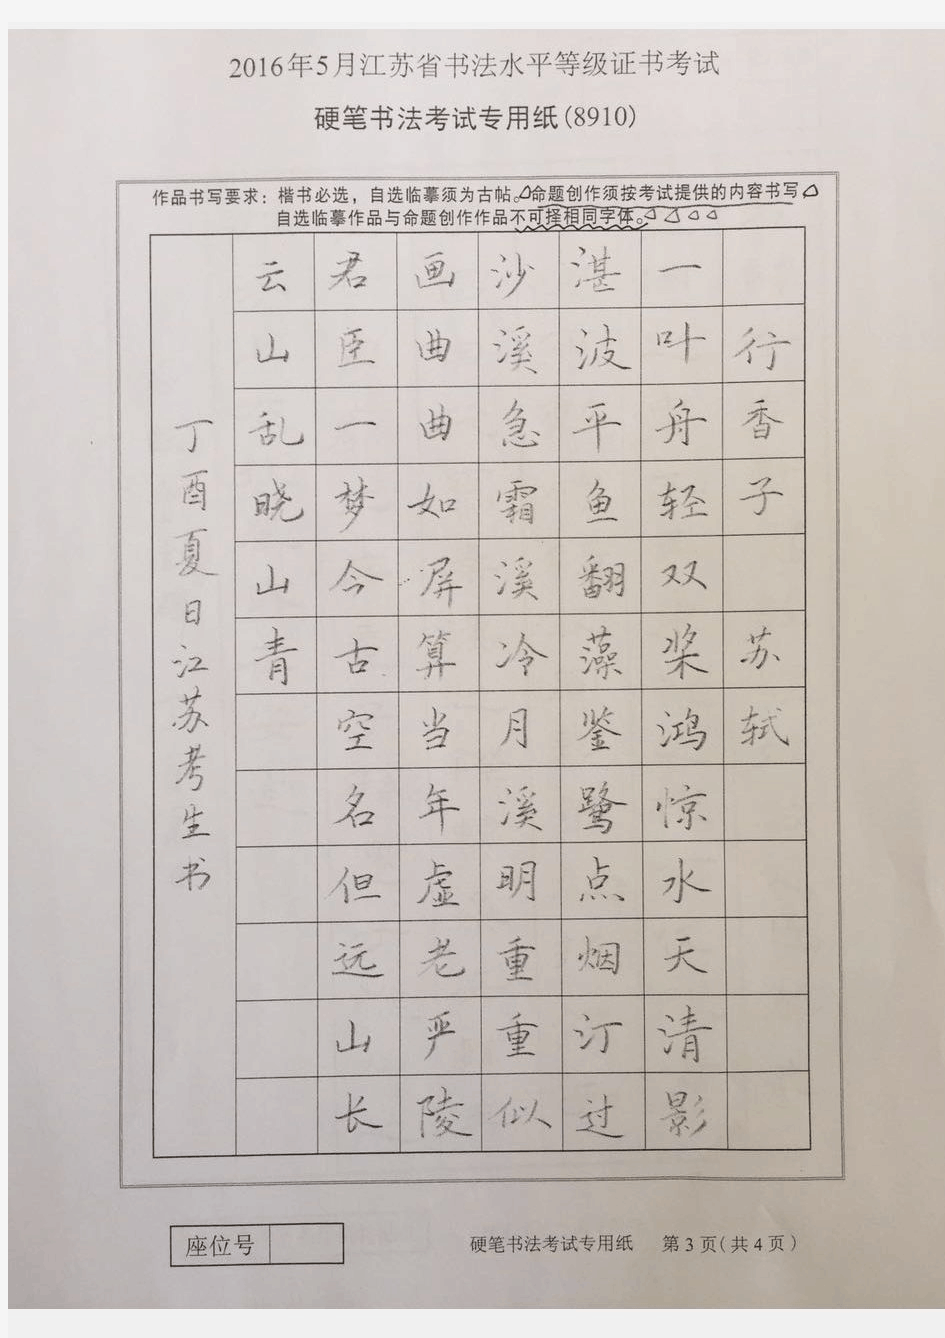 2016年5月江苏省书法水平等级证书考试
硬笔书法考试专用纸(8910)
作品书写要求：楷书必选，自选临摹须为古帖。命题创作须按考试提供的内容书写
自选临摹作品与命题创作作品不可择相同字体。
行香子 苏轼
一叶舟轻双桨鸿惊水天清影
湛波平鱼翻藻鉴鹭点烟汀过
沙溪急霜溪冷月溪明重重似
画曲曲如屏算当年虚老严陵
君臣一梦今古空名但远山长
云山乱晓山青
丁酉夏日江苏考生书
座位号
硬笔书法考试专用纸 第3页(共4页)